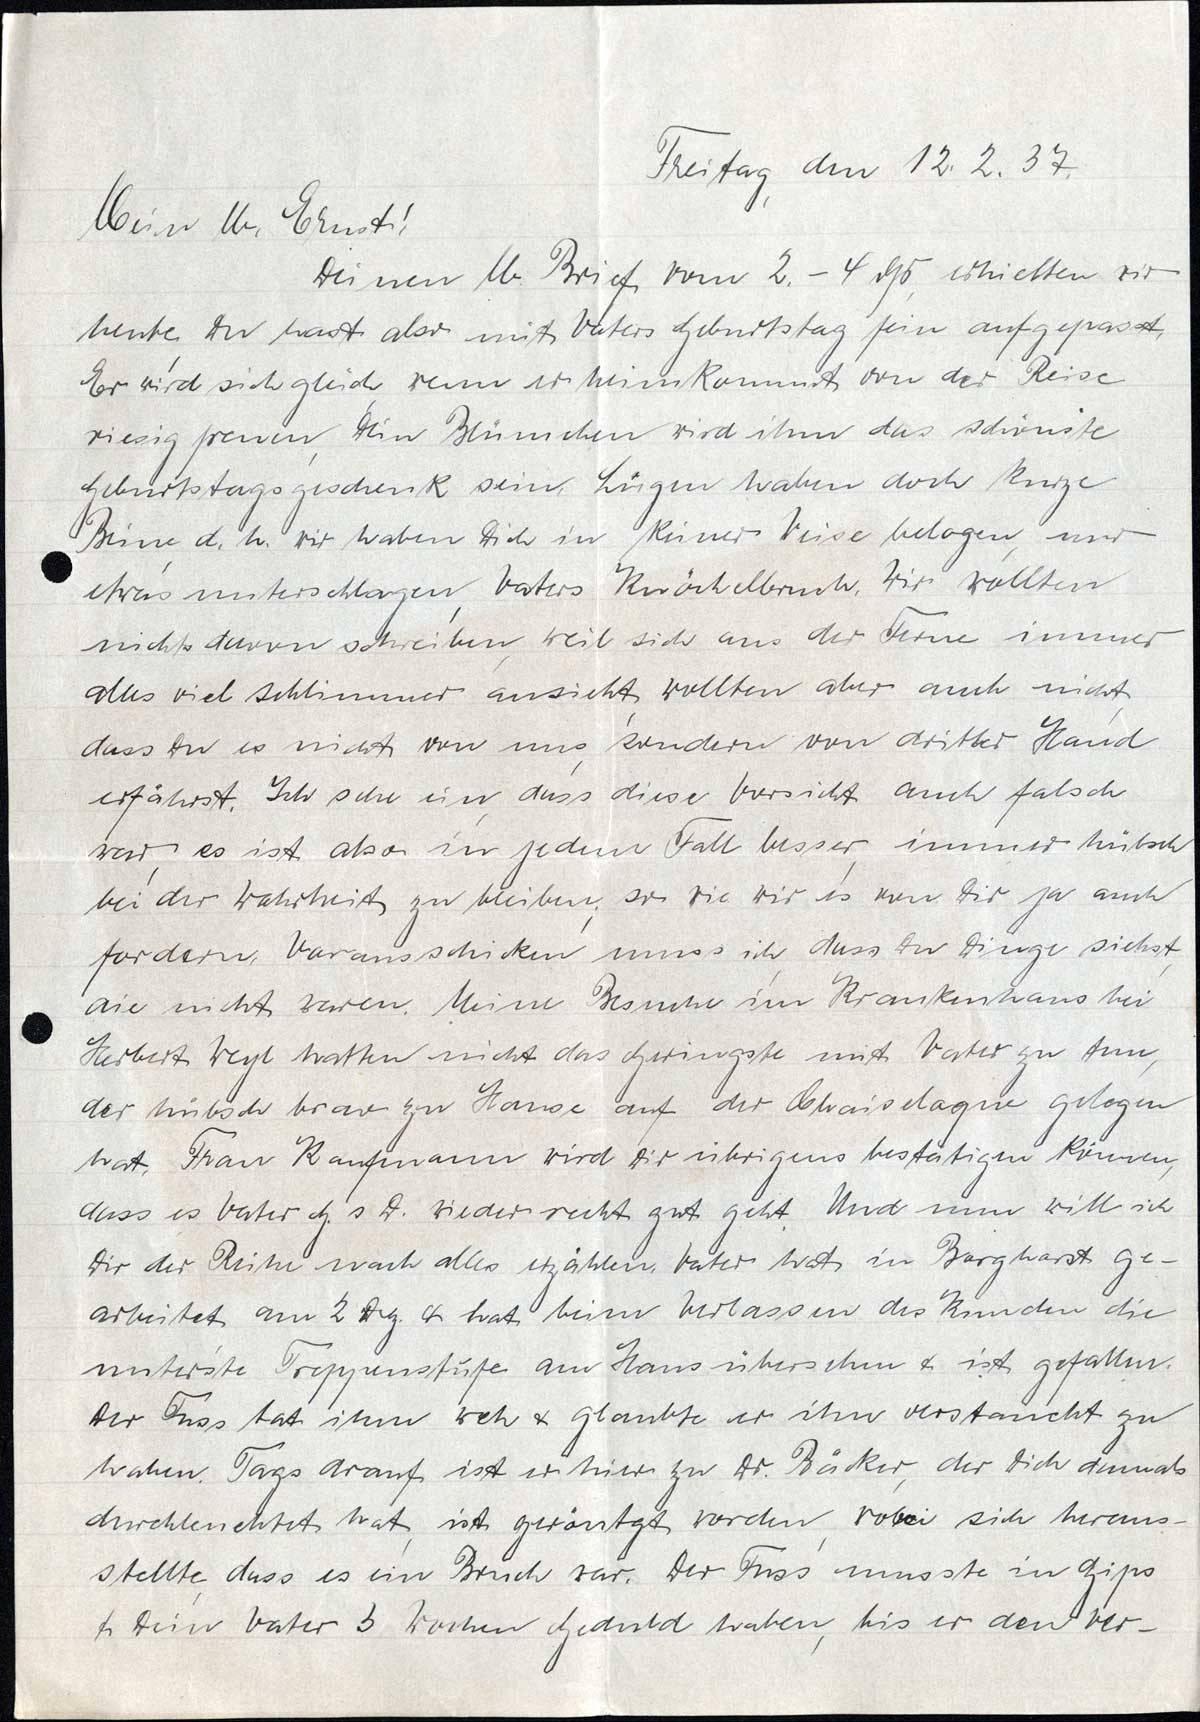 Freitag, den 12. 2. 37.
Mein lb. Ernst!
Deinen lb. Brief vom 2. - 4 ds, erhielten wir
heute. Du hast also mit Vaters Geburtstag fein aufgepasst.
Er wird sich gleich, wenn er heimkommt von der Reise
riesig freuen, Dein Blümchen wird ihm das schönste
Geburtstagsgeschenk sein. Lügen haben doch kurze
Beine d. h. wir haben Dich in keiner Weise belogen, nur
etwas unterschlagen, Vaters Knöchelbruch. Wir wollten
nichts davon schreiben, weil sich aus der Ferne immer
alles viel schlimmer ansieht, wollten aber auch nicht,
dass Du es nicht von uns, sondern von dritter Hand
erfährst. Ich sehe ein, dass diese Vorsicht auch falsch
war, es ist also in jedem Fall besser, immer hübsch
bei der Wahrheit zu bleiben, so wie wir es von Dir ja auch
fordern. Vorausschicken muss ich, dass Du Dinge siehst,
die nicht waren. Meine Besuche im Krankenhaus bei
Herbert Weyl hatten nicht das Geringste mit Vater zu tun,
der hübsch brav zu Hause auf der Chaiselogne gelegen
hat. Frau Kaufmann wird Dir übrigens bestätigen können,
dass es Vater G. s D. wieder recht gut geht. Und nun will ich
Dir der Reihe nach alles erzählen. Vater hat in Borghorst ge-
arbeitet am 2 Dez. & hat beim Verlassen des Kunden die
unterste Treppenstufe am Haus übersehen & ist gefallen.
Der Fuss tat ihm weh & glaubte er ihn verstaucht zu
haben. Tags drauf ist er hier zu Dr. Bäcker, der Dich damals
durchleuchtet hat, ist geröntgt worden, wobei sich heraus-
stellte, dass es ein Bruch war. Der Fuss musste in Gips
& Dein Vater 3 Wochen Geduld haben, bis er den Ver-